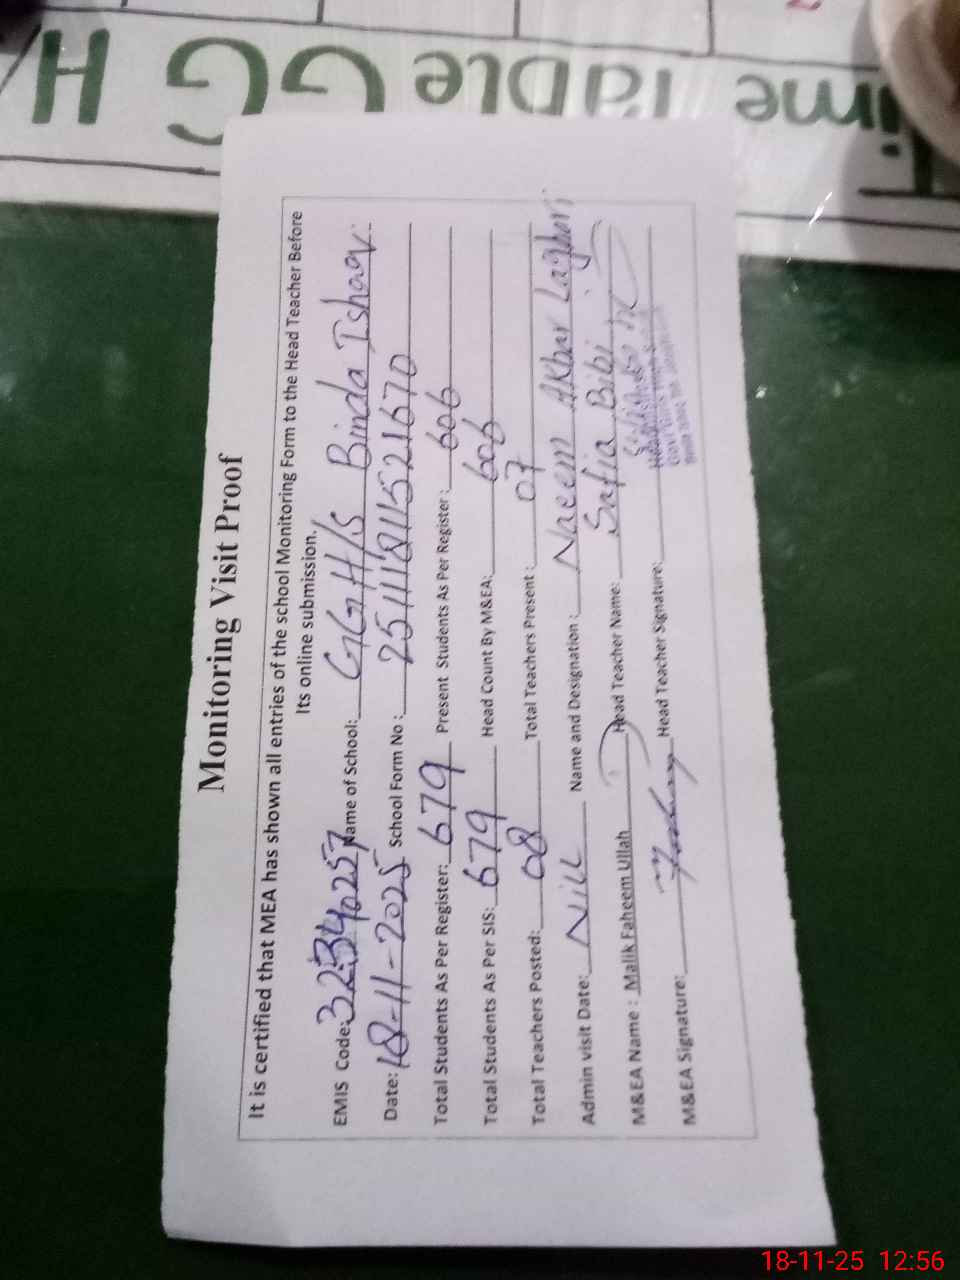 Time Table GGH
Monitoring Visit Proof
It is certified that MEA has shown all entries of the school Monitoring Form to the Head Teacher Before
Its online submission.
EMIS Code: 32340257 Name of School: GGH/S Binda Ishaq.
Date: 18-11-2025 School Form No : 25111811521670
Total Students As Per Register: 679 Present Students As Per Register: 606
Total Students As Per SIS: 679 Head Count By M&EA: 606
Total Teachers Posted: 08 Total Teachers Present : 07
Admin visit Date: Nill Name and Designation : Naeem Akbar Laghari
M&EA Name : Malik Faheem Ullah Head Teacher Name: Safia Bibi
M&EA Signature: Head Teacher Signature:
18-11-25 12:56